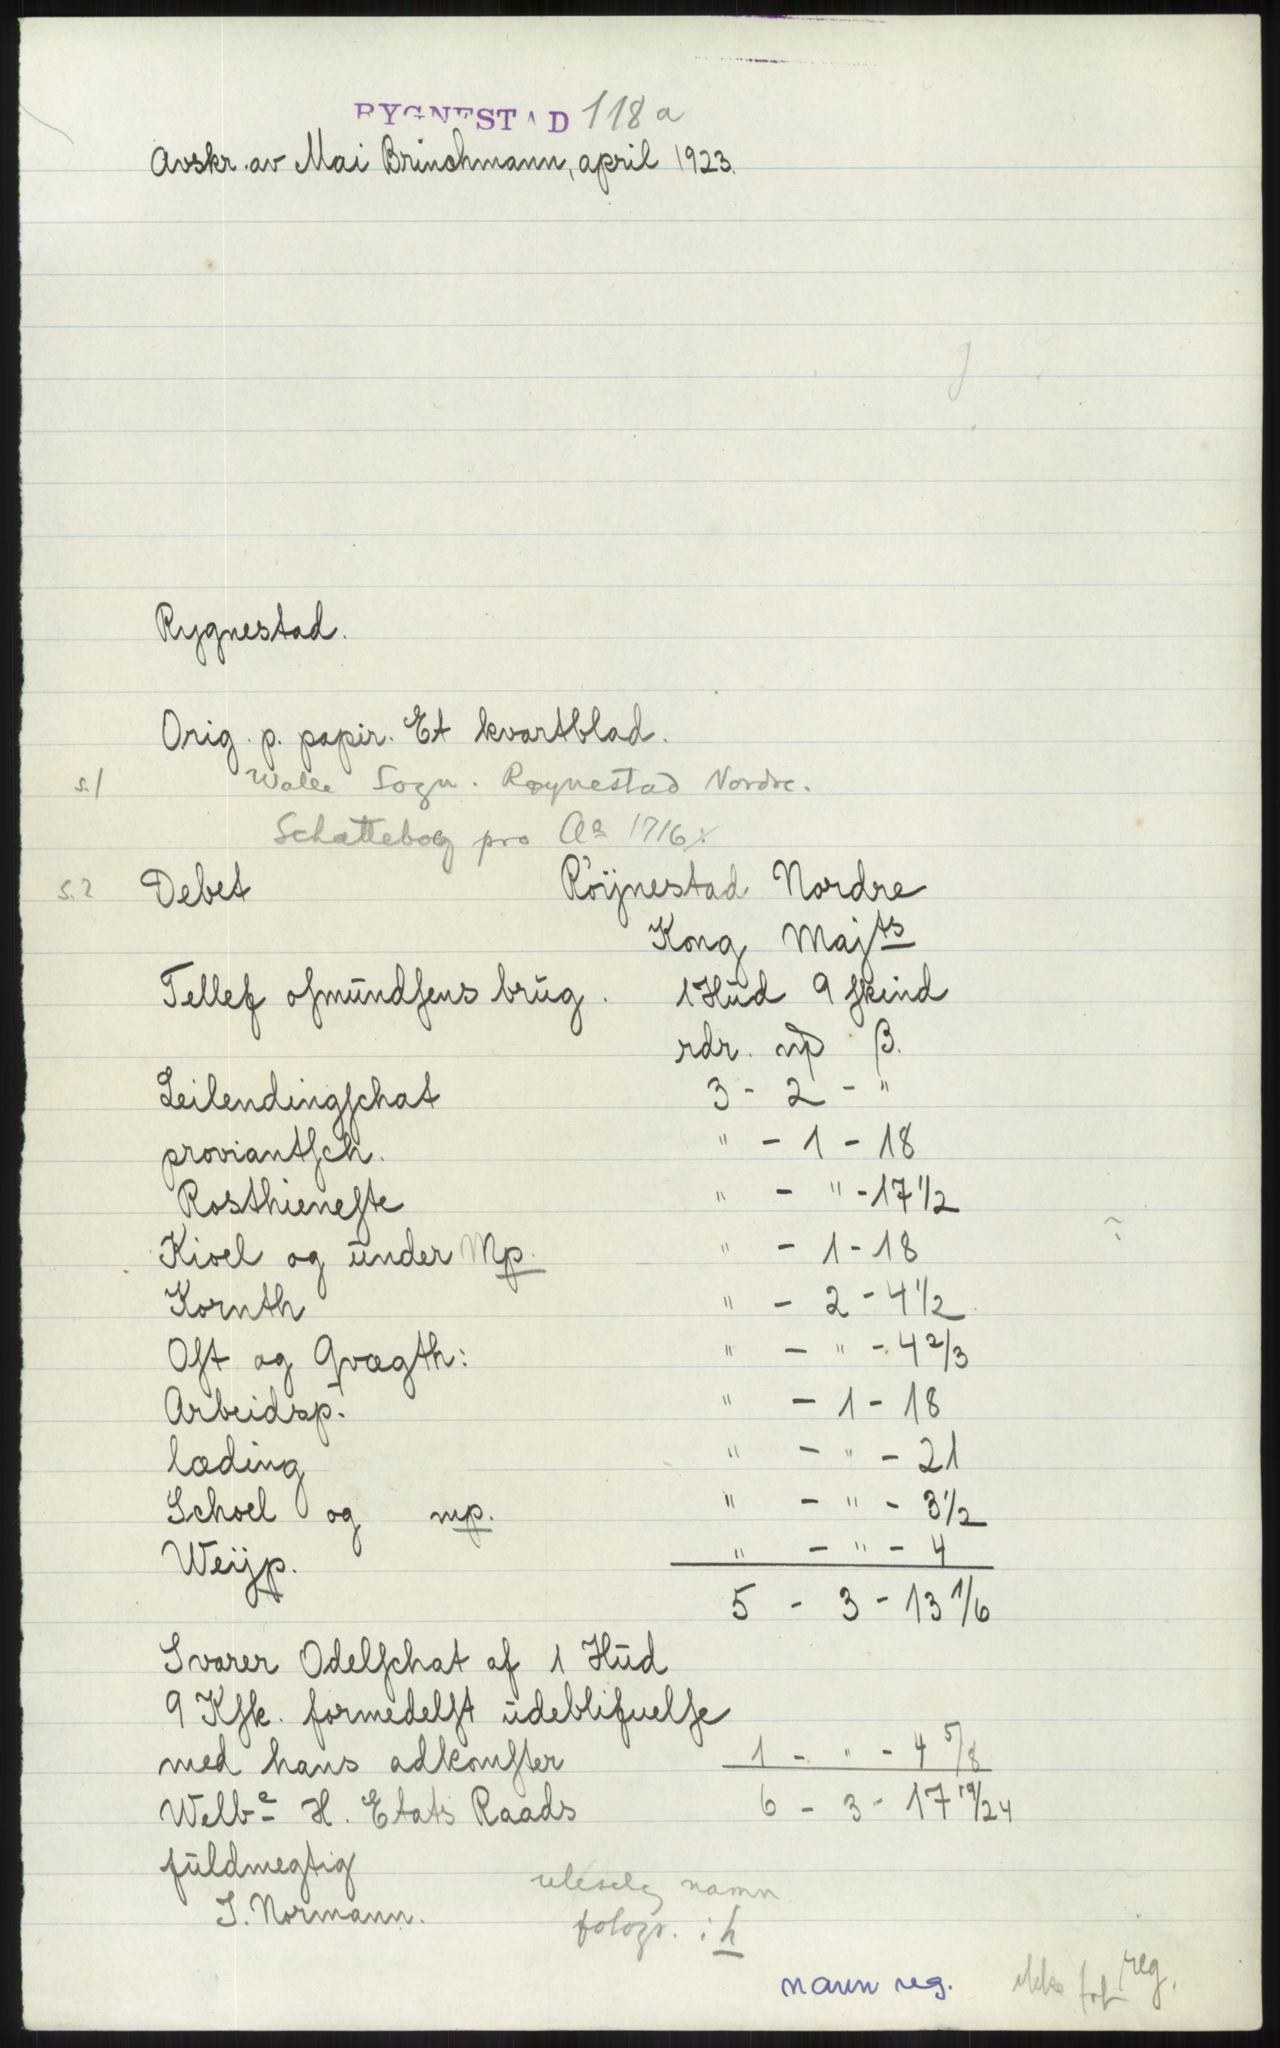 RYGNESTAD 118a
Avskr. av Mai Brinchmann, april 1923.
Rygnestad.
Orig. p. papir. Et kvartblad.
s.1 Walle Sogn. Røynestad Nordre.
Schattebog pro Aº 1716
s.2 Debet Röÿnestad Nordre
Kong Majts
Tellef osmundsens brug. 1 Hud 9 skind
rdr. mp β.
Leilendingschat 3 - 2 - "
proviantsch. " - 1 - 18
Rosthieneste " - " - 17 1/2
Kioel og under Mp. " - 1 - 18
Kornth " - 2 - 4 1/2
Ost og Qvægth: " - " - 4 2/3
Arbeidsp. " - 1 - 18
læding " - " - 21
Schoel og mp. " - " - 3 1/2
Weijp. " - " - 4
5 - 3 - 13 1/6
Svarer Odelschat af 1 Hud
9 Ksk. formedelst udeblifuelse
med hans adkomster 1 - " - 4 5/8
Welbe H. Etats Raads 6 - 3 - 17 19/24
fuldmegtig
J. Normann. uleselig namn
fotogr. i h
navn reg. ikke fot reg.